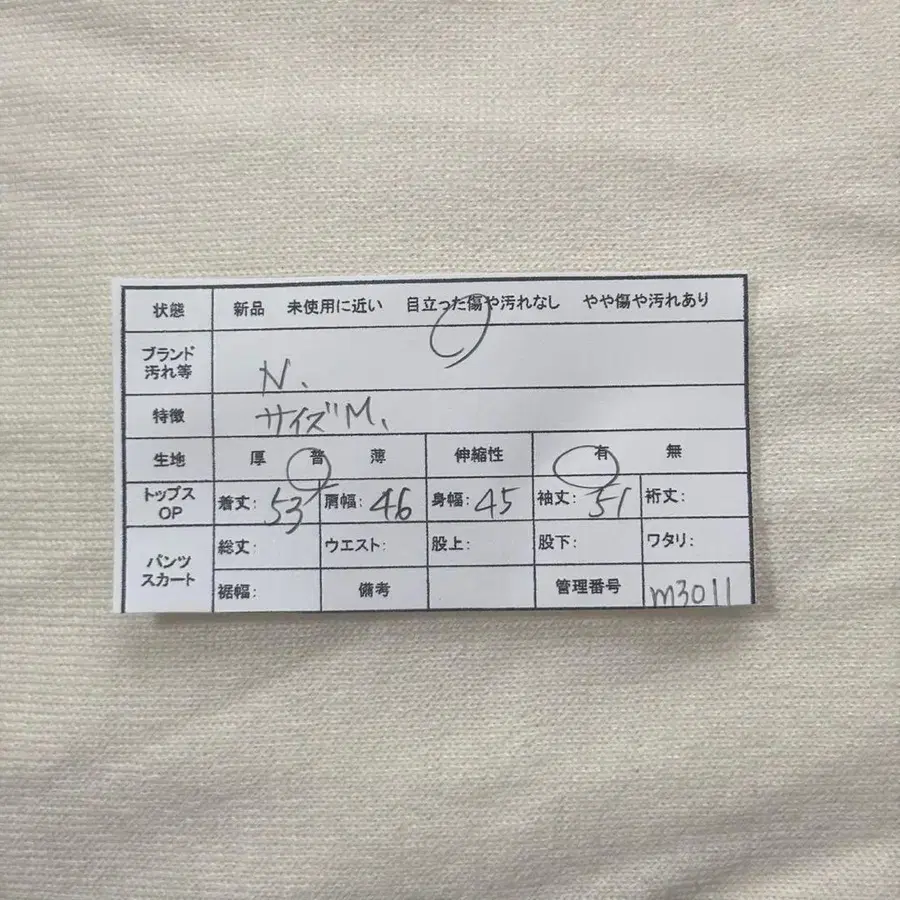 状態 新品 未使用に近い 目立った傷や汚れなし やや傷や汚れあり
ブランド
汚れ等
N.
特徴 サイズM.
生地 厚 普 薄 伸縮性 有 無
トップス
OP
着丈: 53 肩幅: 46 身幅: 45 袖丈: 51 裄丈:
パンツ
スカート
総丈: ウエスト: 股上: 股下: ワタリ:
裾幅: 備考 管理番号 m3011